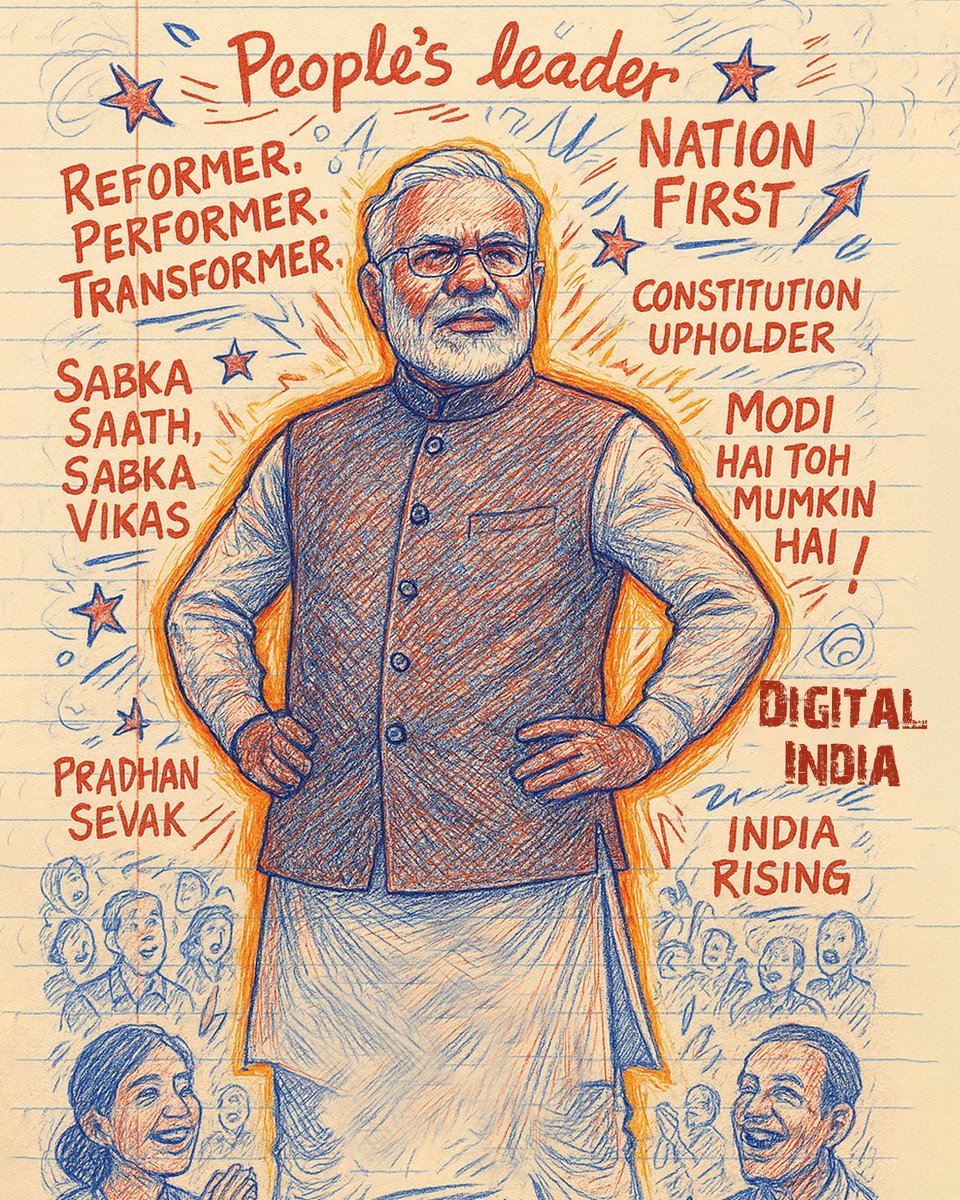 People's leader
REFORMER.
PERFORMER.
TRANSFORMER.
NATION
FIRST
CONSTITUTION
UPHOLDER
SABKA
SAATH,
SABKA
VIKAS
MODI
HAI TOH
MUMKIN
HAI !
DIGITAL
INDIA
PRADHAN
SEVAK
INDIA
RISING